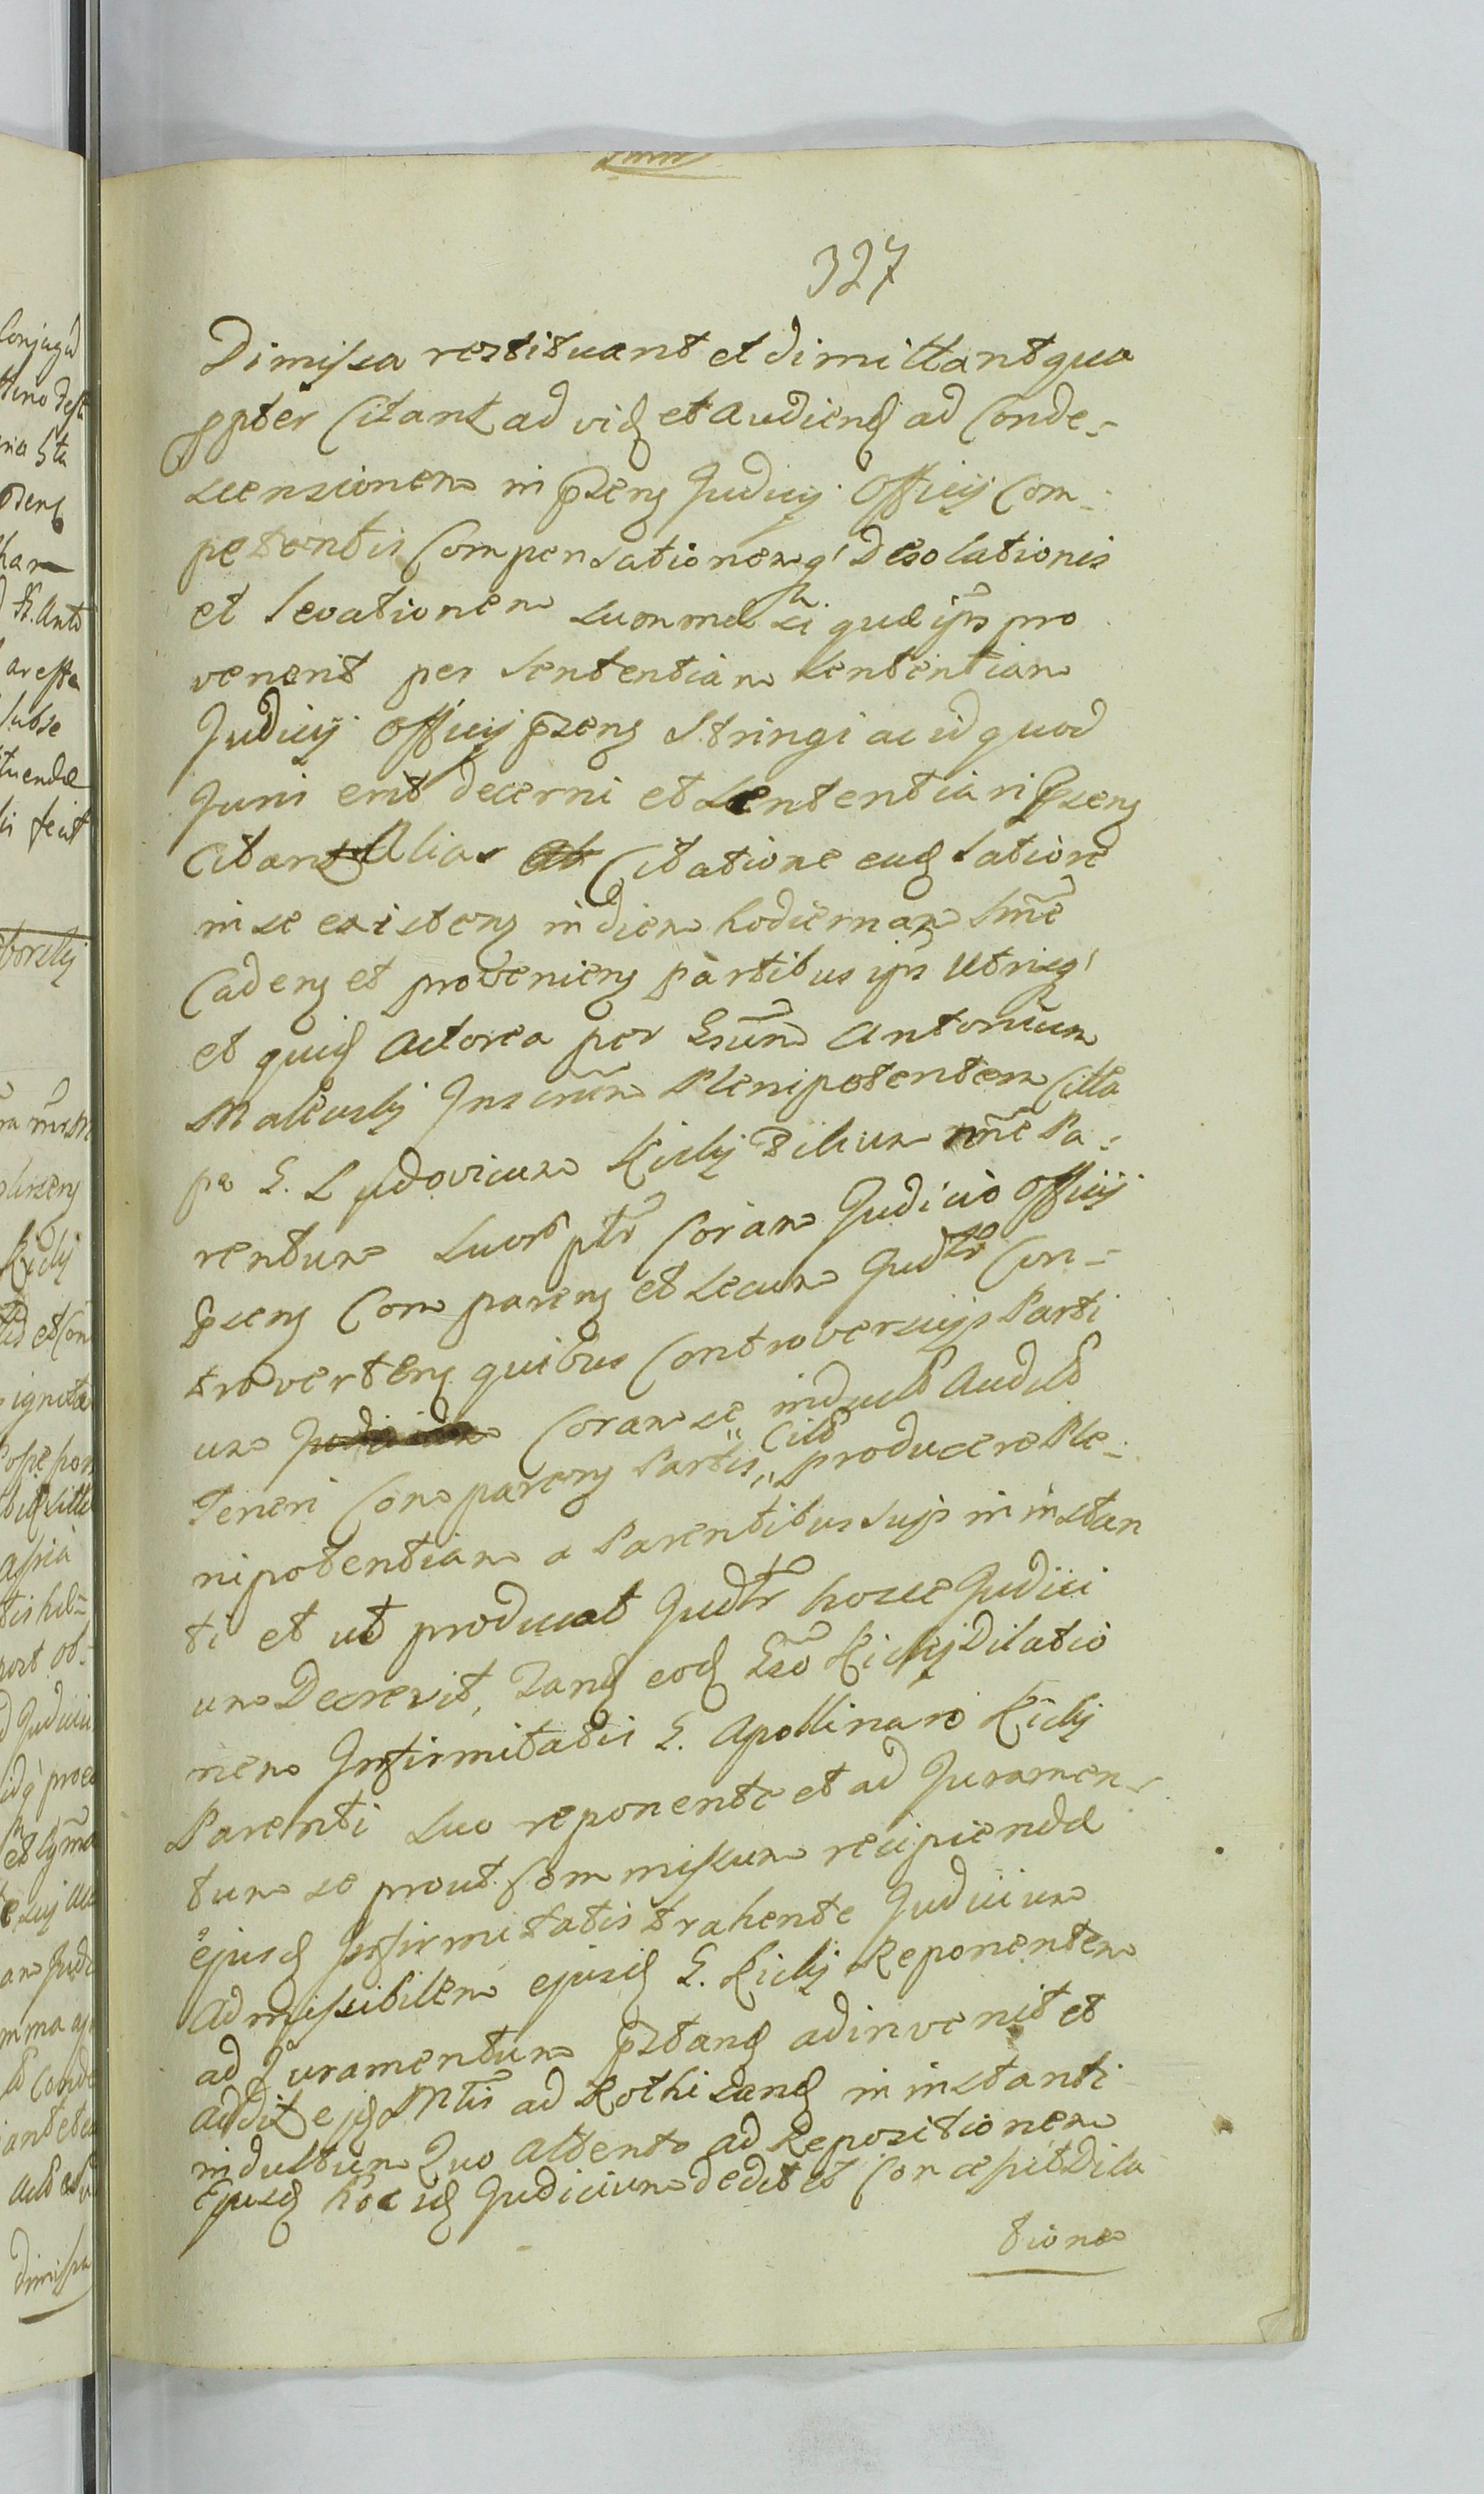 327
Dimissa restituant et dimittant qua
ppter Citant ad vid et audiend ad Conde-
scensionem in psens Judicij Officij Com-
petentis Compensationemq desolationis
et levationem summae si quae ijs pro
venerit per Sententiam Sententiam
Judicij Officij psens Stringi ac id quod
Juris erit decerni et Sententiari psens
Citant Alias Citatione ead latiore
in se existens in diem hodiernam
Cadens et proveniens partibus ijs Utrisq
et quid Actorea per Antonium
Malewskij Plenipotentem Citta
pa G. Ludovicum Kickij Filium nne Pa-
rentum suor ptr Coram Judicio Officij
psens Comparens et secum Judtr Con-
trovertens quibus Controversijs Parti
um Coram se induct Audit
Teneri Comparens Partis Citt producere Ple-
nipotentiam a Parentibus suijs in instan
ti et ut producat Judtr hocce Judici
um Decrevit, Tand eod Kickij Dilatio
nem Infirmitatis G. Apollinaro Kickij
Parenti suo reponente et ad Juramen-
tum se prout Commissum recipiendae
ejusd Infirmitatis trahente Judicium
Admissibilem ejusd G. Kickij Reponentem
ad Juramentum pstand adinvenit et
addit ad Rothisand in instanti
indultum Quo attento ad Repositionem
Ejusd hoc id Judicium dedit et Concessit Dila
tione